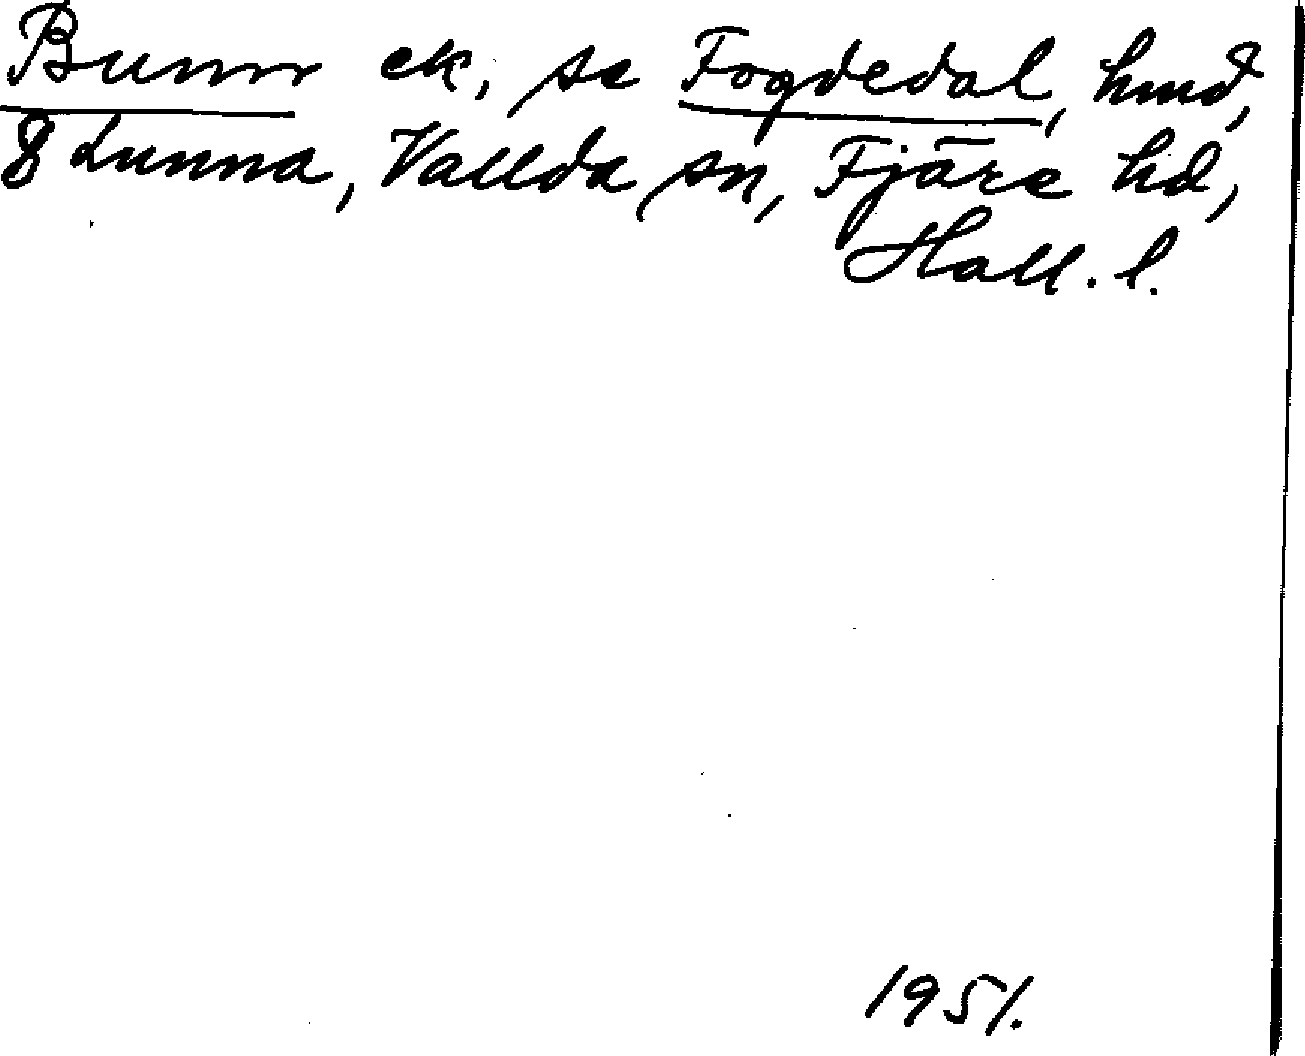 Bunnr ek, se Fogdedal, hmd,
8 Lunna, Vallda sn, Fjäre hd,
Hall. l.
1951.